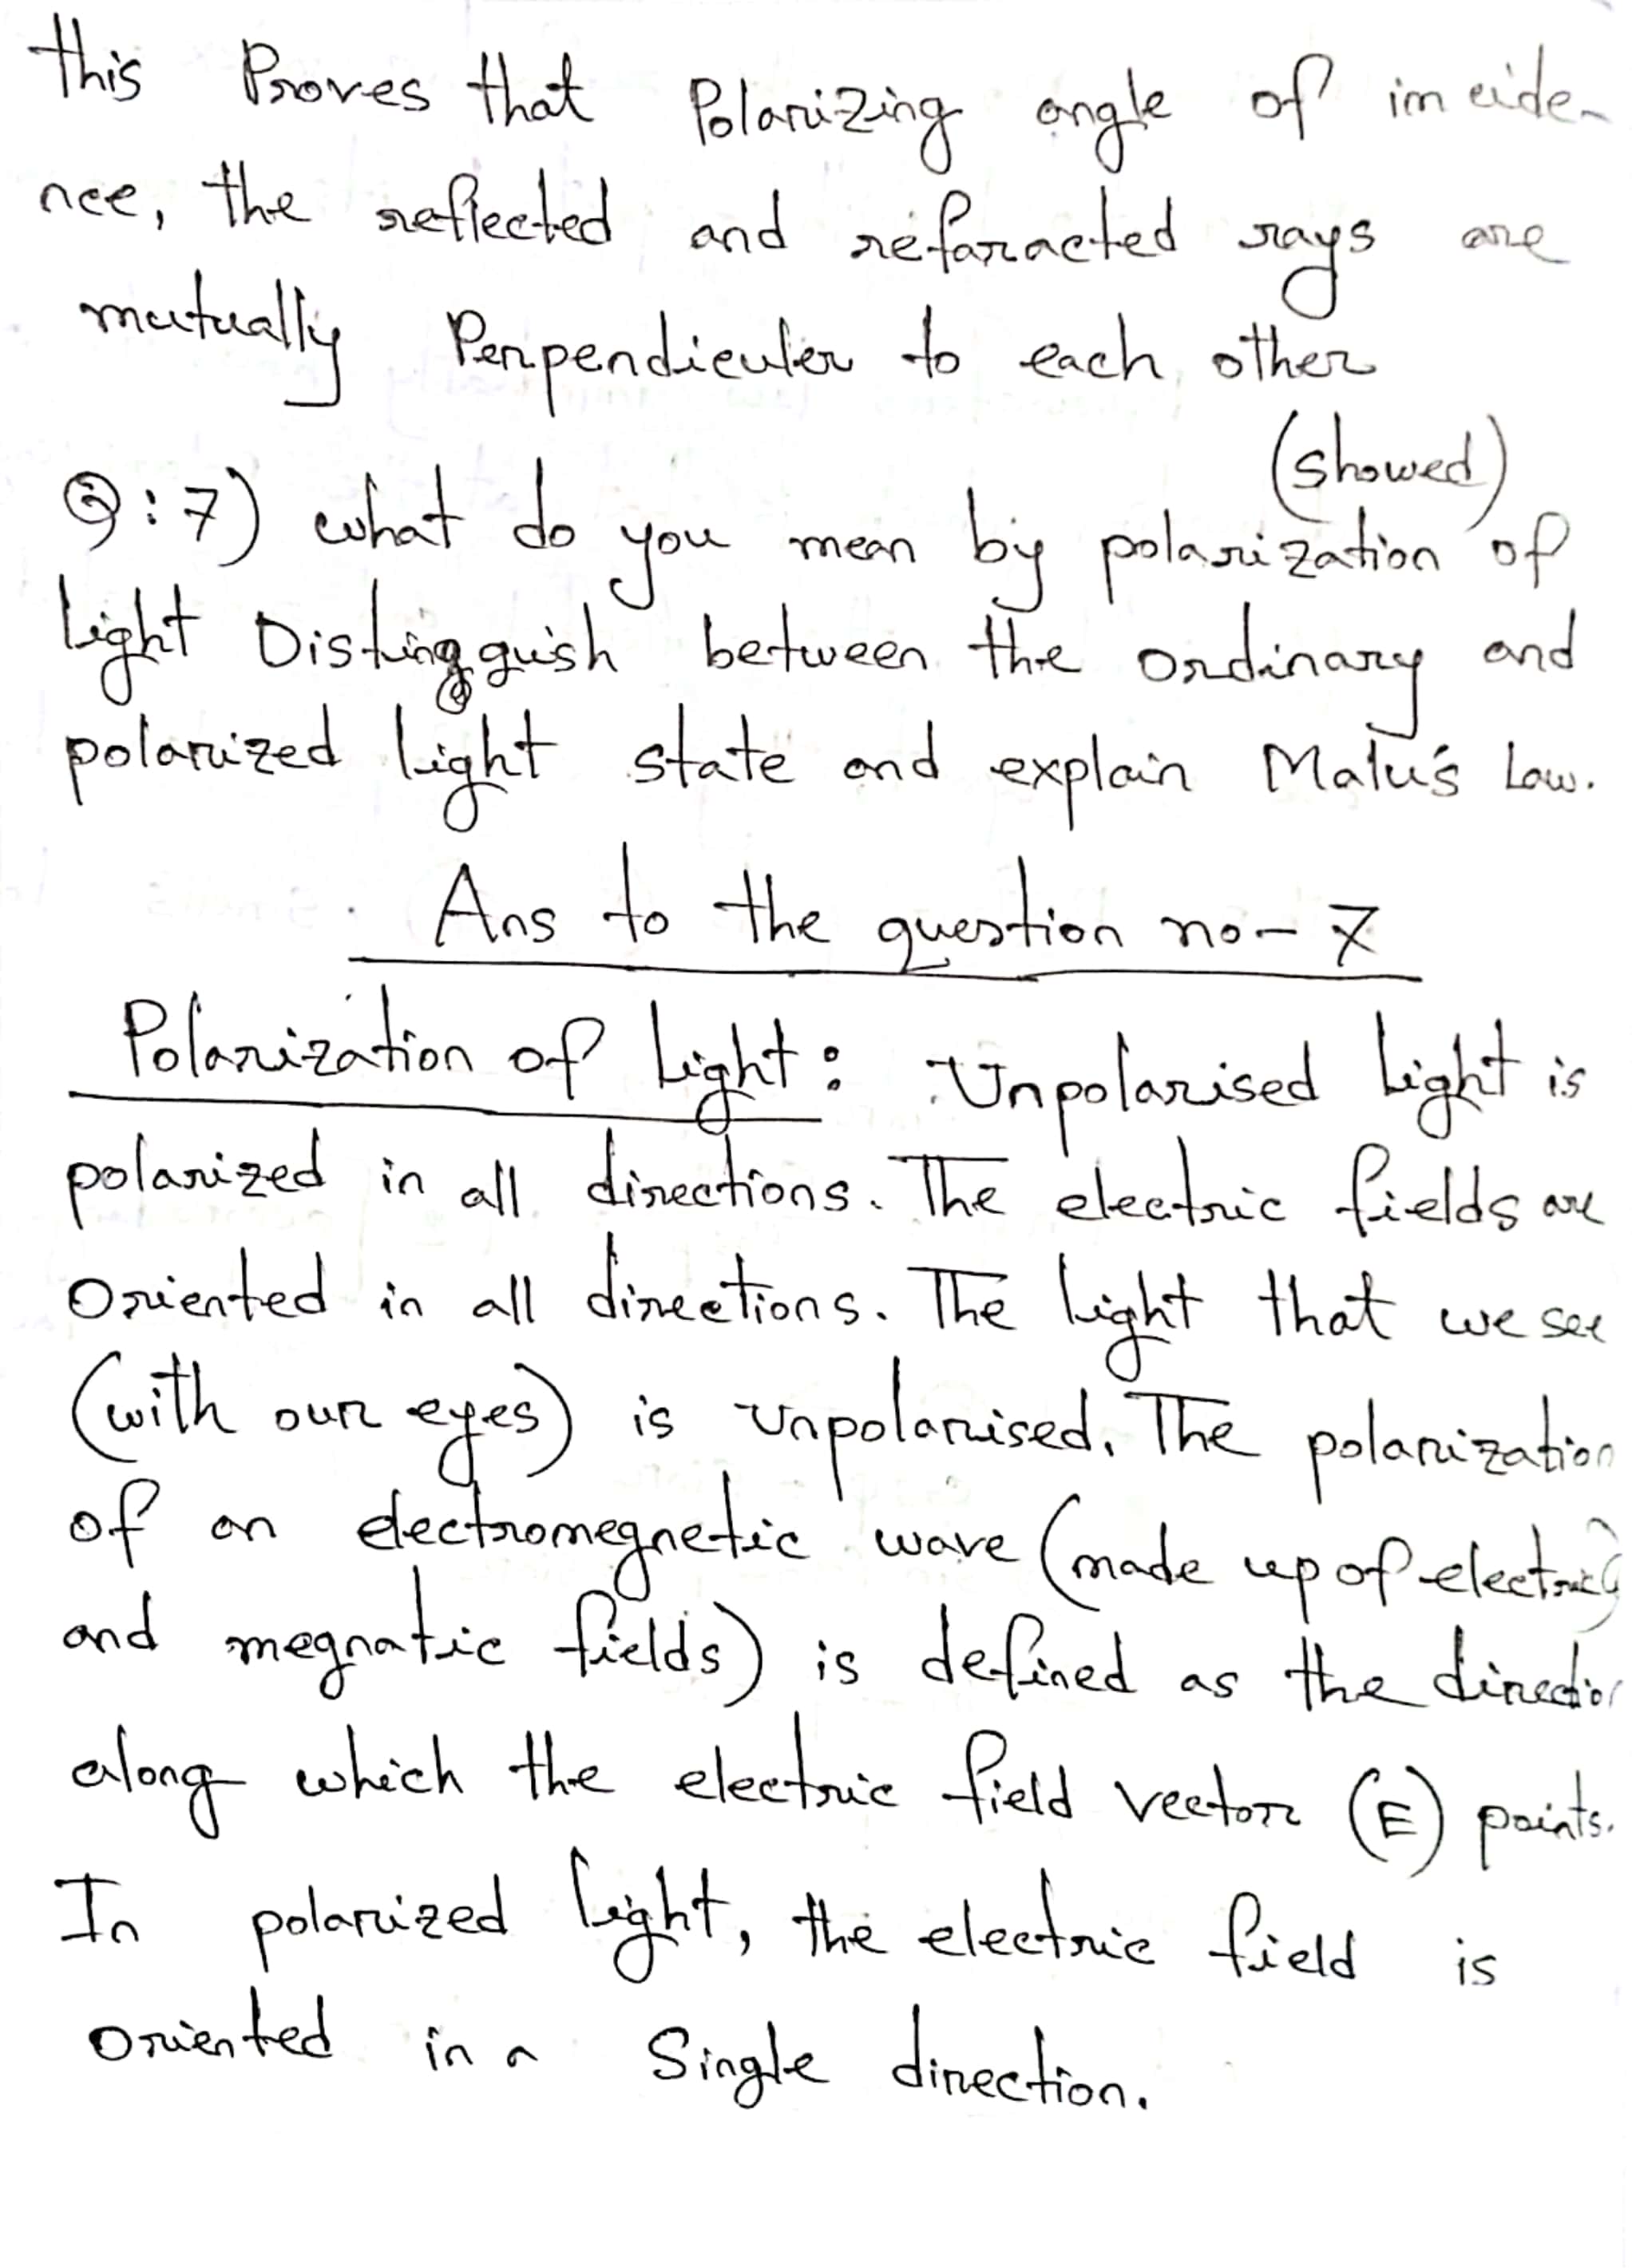 this Proves that Polarizing angle of incide-
nce, the reflected and refaracted rays are
mutually Perpendiculer to each other
(showed)
Q:7) what do you mean by polarization of
light Distingguish between the ordinary and
polarized light state and explain Malu's Law.
Ans to the question no- 7
Polarization of Light: Unpolarised Light is
polarized in all directions. The electric fields are
Oriented in all directions. The light that we see
(with our eyes) is unpolarised. The polarization
of an electromegnetic wave (made up of electric)
and megnatic fields) is defined as the direction
along which the electric field vector (E) points.
In polarized light, the electric field is
Oriented in a Single direction.